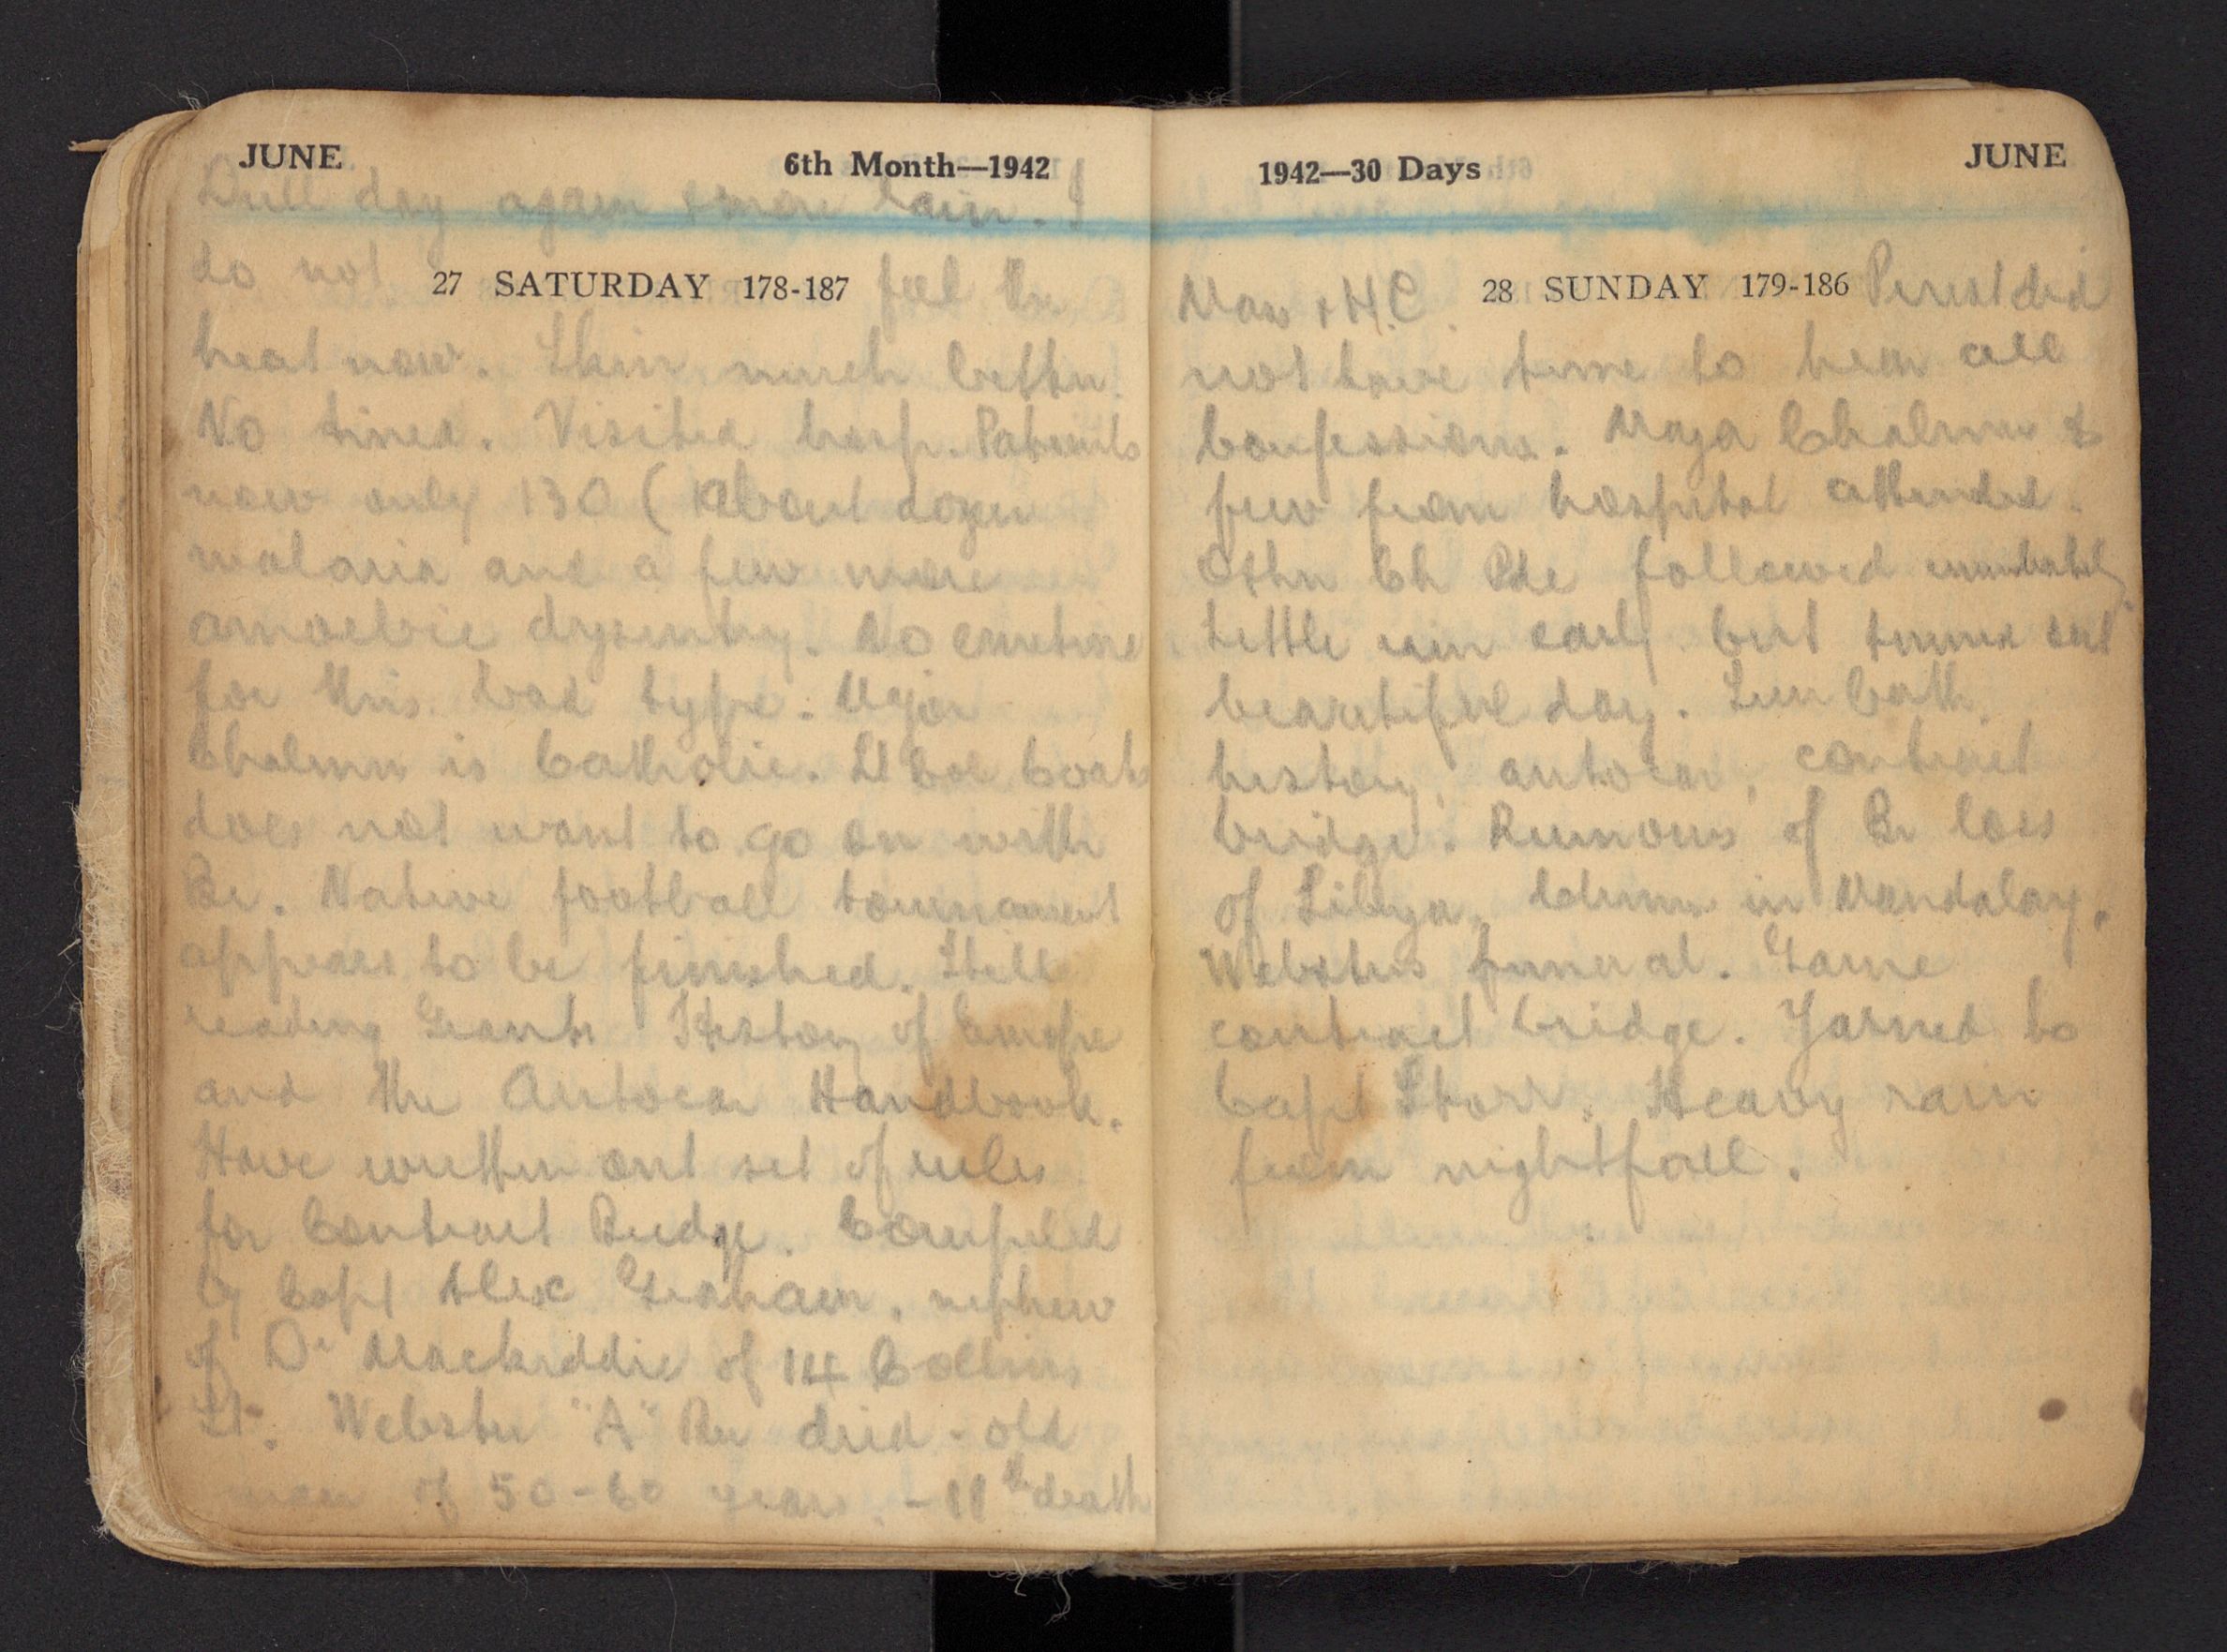 JUNE 6th Month—1942
Dull day again & more rain. I
do not 27 SATURDAY 178-187 feel the
heat now. Skin much better.
No tinea. Visited hosp. Patients
now only 130 (About dozen
malaria and a few more
amoebic dysentry. No emetine
for this bad type. Major
Chalmer is Catholic. Lt Col Coats
does not want to go on with
Br. Native football tournament
appears to be finished. Still
reading Grants History of Europe
and the Autocar Handbook.
Have written out set of rules
for Contract Bridge. Compiled
by Capt Alex Graham, nephew
of Dr Mackeddie of 14 Collins
St. Webster "A" died - old
man of 50-60 years. - 11th death
1942—30 Days JUNE
Mass & H.C. 28 SUNDAY 179-186 Priest did
not have time to hear all
Confessions. Major Chalmer &
few from hospital attended.
Other Ch Pde followed immediately
Little rain early but turned out
beautiful day. Sun bath,
history, autocar, contract
bridge. Rumours of Br loss
of Libya, in Mandalay.
Websters funeral. Game
contract bridge. Yarned to
Capt Storr. Heavy rain
from nightfall.